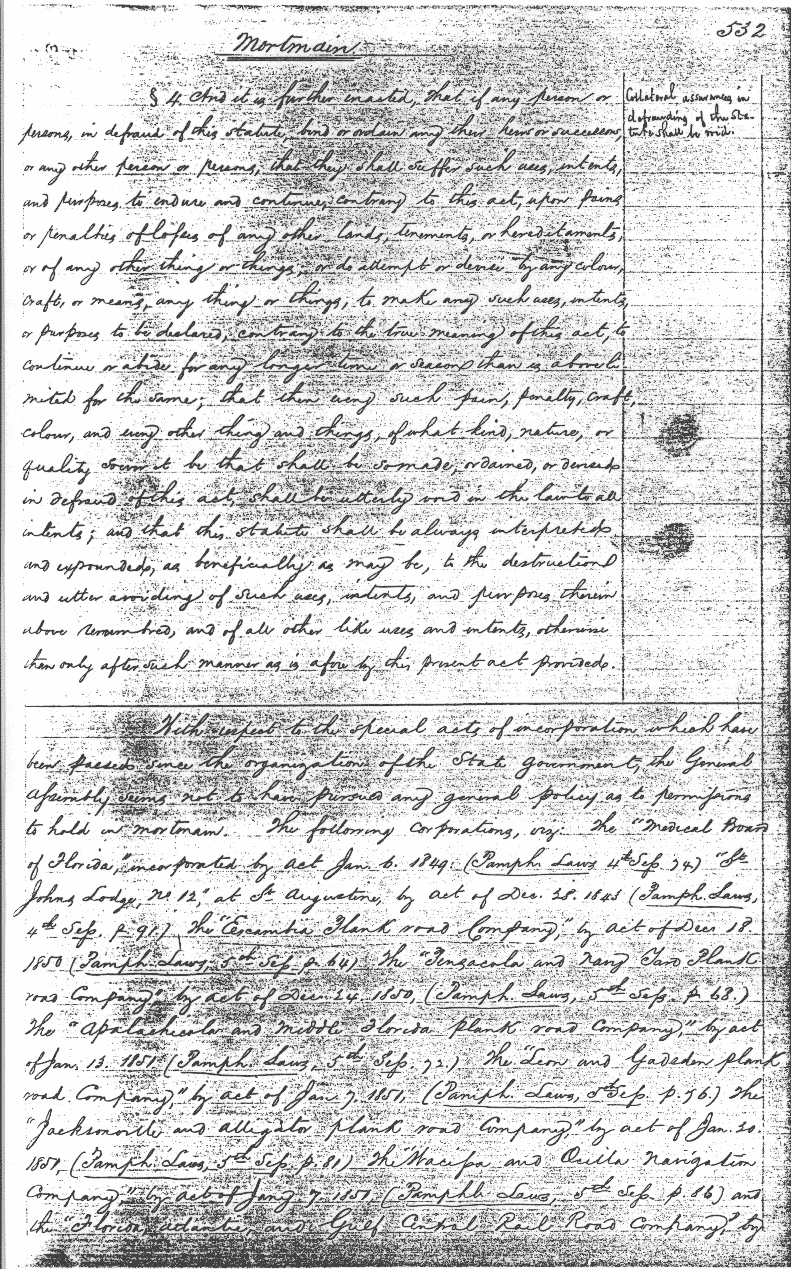 532
Mortmain.
§ 4. And it is further enacted, that if any person or
persons, in defraud of this statute, bind or ordain any their heirs or successors,
or any other person or persons, that they shall suffer such uses, intents,
and purposes to endure and continue, contrary to this act, upon pains
or penalties of losses of any other lands, tenements, or hereditaments,
or of any other thing or things, or do attempt or devise by any colour,
craft, or means, any thing or things, to make any such uses, intents,
or purposes to be declared, contrary to the true meaning of this act, to
continue or abide for any longer time or season than is above li-
mited for the same; that then every such pain, penalty, craft,
colour, and every other thing and things, of what kind, nature, or
quality soever it be that shall be so made, ordained, or devised
in defraud of this act, shall be utterly void in the law to all
intents; and that this statute shall be always interpreted
and expounded, as beneficially as may be, to the destruction
and utter avoiding of such uses, intents, and purposes therein
above remembred, and of all other like uses and intents, otherwise
then only after such manner as is afore by this present act provided.
Collateral assurances in
defrauding of the sta-
tute shall be void.
With respect to the special acts of incorporation which have
been passed since the organization of the State government, the General
Assembly seems not to have pursued any general policy as to permissions
to hold in mortmain. The following corporations, viz: The "Medical Board
of Florida," incorporated by act Jan. 6. 1849: (Pamph. Laws 4th Sess. 74) "St
Johns Lodge, No 12," at St Augustine, by act of Dec. 28. 1848 (Pamph. Laws,
4th Sess. p. 91.) The "Escambia Plank road Company," by act of Decr 18
1850 (Pamph. Laws, 5th Sess. p. 64) The "Pensacola and Navy Yard Plank
road Company," by act of Decr. 24. 1850, (Pamph. Laws, 5th Sess. p 68.)
The "Apalachicola and Middle Florida plank road Company," by act
of Jan. 13. 1851 (Pamph. Laws, 5th Sess. 72.) The "Leon and Gadsden plank
road Company," by act of Jan. 7. 1851, (Pamph. Laws, 5th Sess. p. 76.) The
"Jacksonville and alligator plank road Company," by act of Jan. 20.
1851, (Pamph. Laws, 5th Sess. p. 81) The Wacissa and Ocilla Navigation
Company," by act of Jany 7. 1851, (Pamphl. Laws, 5th Sess. p. 86) and
the "Florida, Atlantic, and Gulf Central Rail Road Company," by